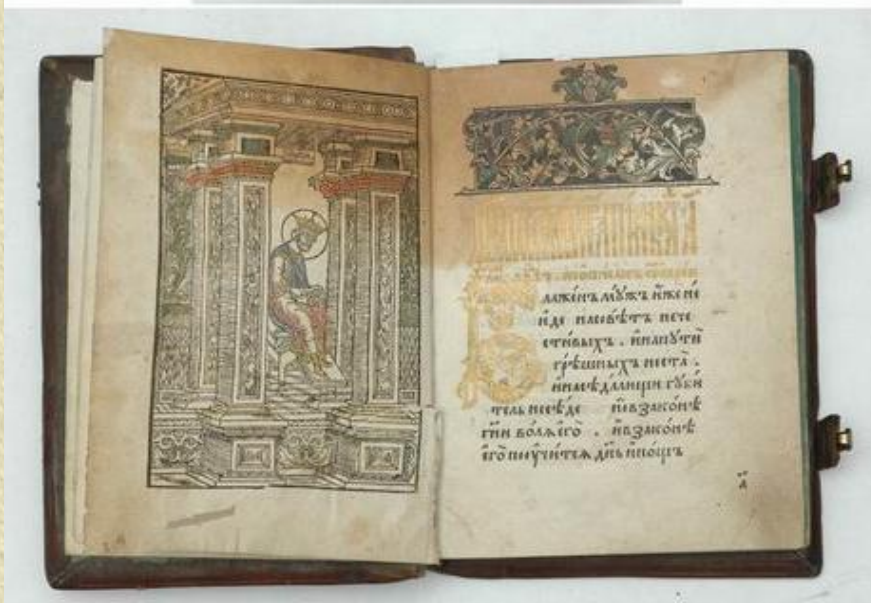 Блаже́нъ мꙋ́жъ и҆́же не
и҆́де на совѣ́тъ нече
сти́выхъ . и҆ на пꙋти̑
грѣ́шныхъ не ста̀ .
и҆ на сѣда́лищи гꙋби́
тель не сѣ́де но в зако́нѣ
гн҃и во́лѧ є҆го̀ . и҆ в зако́нѣ
є҆го̀ поꙋчи́тсѧ дн҃ь и҆ но́щъ
а҃